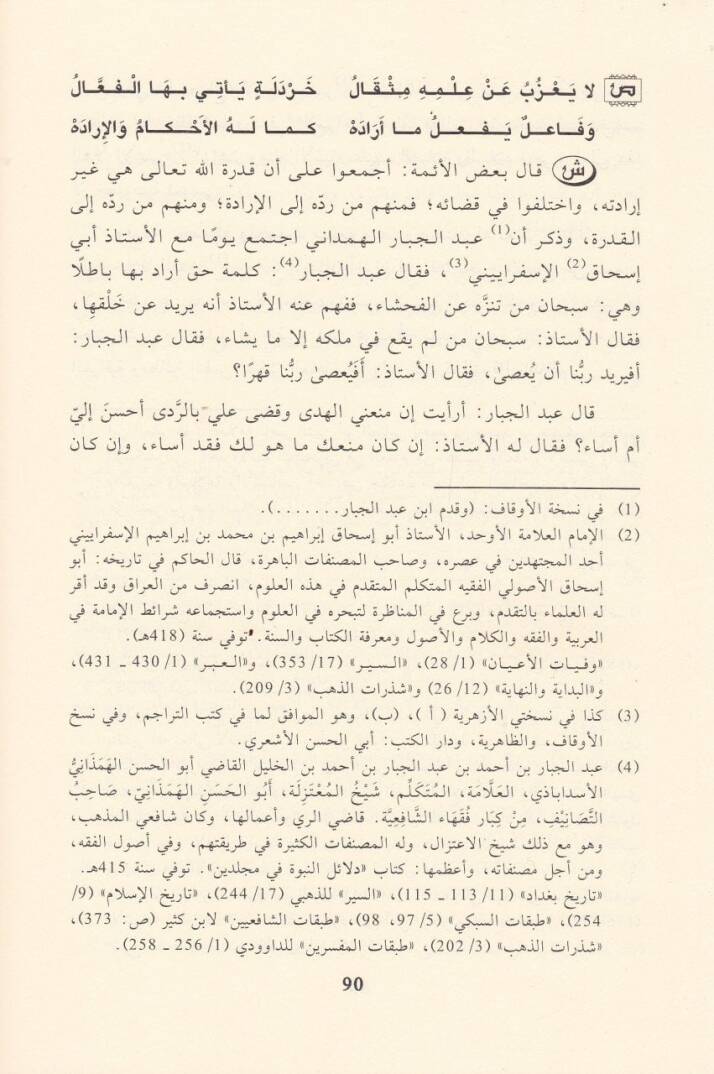 ص لا يَعْزُبُ عَنْ عِلْمِهِ مِثْقَالُ خَرْدَلَةٍ يَأتِي بِهَا الْفَعَّالُ
وَفَاعِلٌ يَفْعَلُ ما أَرَادَهْ كما لَهُ الأَحْكامُ وَالإِرادَهْ
ش قال بعض الأئمة: أجمعوا على أن قدرة الله تعالى هي غير
إرادته، واختلفوا في قضائه؛ فمنهم من ردّه إلى الإرادة؛ ومنهم من ردّه إلى
القدرة، وذكر أن(1) عبد الجبار الهمداني اجتمع يومًا مع الأستاذ أبي
إسحاق(2) الإسفراييني(3)، فقال عبد الجبار(4): كلمة حق أراد بها باطلًا
وهي: سبحان من تنزَّه عن الفحشاء، ففهم عنه الأستاذ أنه يريد عن خَلْقِها،
فقال الأستاذ: سبحان من لم يقع في ملكه إلا ما يشاء، فقال عبد الجبار:
أفيريد ربُّنا أن يُعصىٰ، فقال الأستاذ: أَفَيُعصىٰ ربُّنا قهرًا؟
قال عبد الجبار: أرأيت إن منعني الهدى وقضى علي بالرَّدى أحسنَ إليّ
أم أساء؟ فقال له الأستاذ: إن كان منعك ما هو لك فقد أساء، وإن كان
(1) في نسخة الأوقاف: (وقدم ابن عبد الجبار.......).
(2) الإمام العلامة الأوحد، الأستاذ أبو إسحاق إبراهيم بن محمد بن إبراهيم الإسفراييني
أحد المجتهدين في عصره، وصاحب المصنفات الباهرة، قال الحاكم في تاريخه: أبو
إسحاق الأصولي الفقيه المتكلم المتقدم في هذه العلوم، انصرف من العراق وقد أقر
له العلماء بالتقدم، وبرع في المناظرة لتبحره في العلوم واستجماعه شرائط الإمامة في
العربية والفقه والكلام والأصول ومعرفة الكتاب والسنة. توفي سنة (418هـ).
«وفيات الأعيان» (1/ 28)، «السير» (17/ 353)، و«العبر» (1/ 430 ـ 431)،
و«البداية والنهاية» (12/ 26) و«شذرات الذهب» (3/ 209).
(3) كذا في نسختي الأزهرية ( أ )، (ب)، وهو الموافق لما في كتب التراجم، وفي نسخ
الأوقاف، والظاهرية، ودار الكتب: أبي الحسن الأشعري.
(4) عبد الجبار بن أحمد بن عبد الجبار بن أحمد بن الخليل القاضي أبو الحسن الهَمَذَانِيُّ
الأسداباذي، العَلَّامَة، المُتَكَلِّم، شَيْخُ المُعْتَزِلَة، أَبُو الحَسَنِ الهَمَذَانِيّ، صَاحِبُ
التَّصَانِيْفِ، مِنْ كِبَار فُقَهَاء الشَّافِعِيَّة. قاضي الري وأعمالها، وكان شافعي المذهب،
وهو مع ذلك شيخ الاعتزال، وله المصنفات الكثيرة في طريقتهم، وفي أصول الفقه،
ومن أجل مصنفاته، وأعظمها: كتاب «دلائل النبوة في مجلدين». توفي سنة 415هـ.
«تاريخ بغداد» (11/ 113 ـ 115)، «السير» للذهبي (17/ 244)، «تاريخ الإسلام» (9/
254)، «طبقات السبكي» (5/ 97، 98)، «طبقات الشافعيين» لابن كثير (ص: 373)،
«شذرات الذهب» (3/ 202)، «طبقات المفسرين» للداوودي (1/ 256 ـ 258).
90